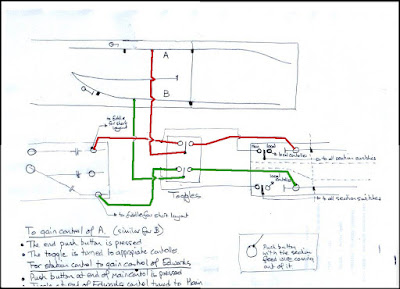 A
B
to fiddle
for short
layout
Main
local
local controller
to all section switches
local
controller
to all section switches
Toggles
to fiddle for short layout
To gain control of A (similar for B)
• The end push button is pressed
• The toggle is turned to appropriate controller
For station control to gain control of Edwards
• Push button at end of main control is pressed
• Toggle at end of Edwards control turned to Main
Push button
with the section
feed wire coming
out of it